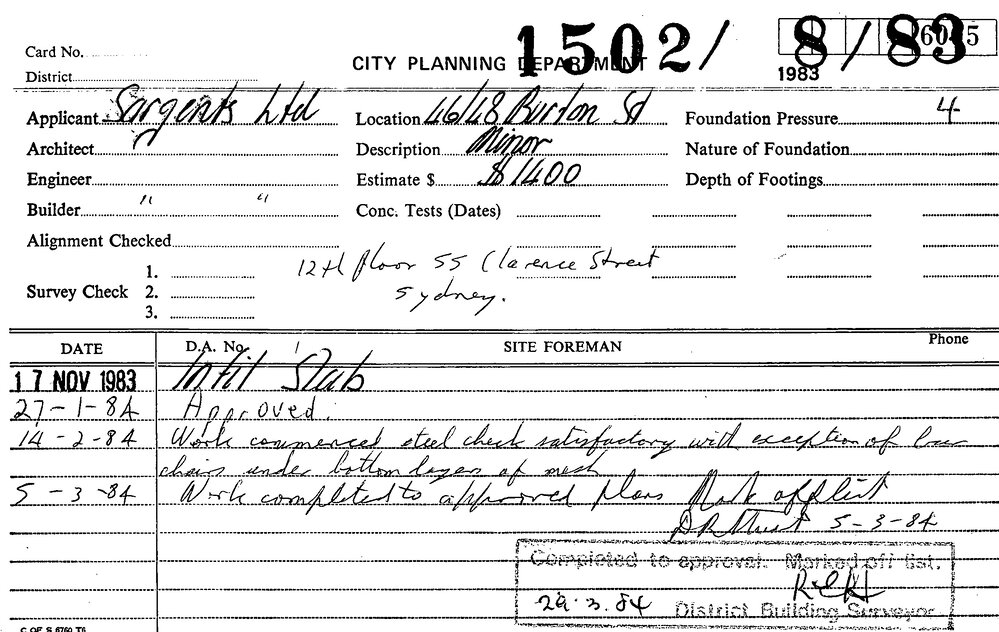 Card No. 1502/ 8/83
CITY PLANNING DEPARTMENT 1983
District
Applicant Sargents Ltd Location 46/48 Burton St Foundation Pressure 4
Architect Description Minor Nature of Foundation
Engineer Estimate $ $1400 Depth of Footings
Builder " " Conc. Tests (Dates)
Alignment Checked
12th floor 55 Clarence Street
Sydney.
Survey Check 1.
2.
3.
DATE D.A. No. SITE FOREMAN Phone
17 NOV 1983 Infil Slab
27-1-84 Approved.
14-2-84 Work commenced steel check satisfactory with exception of bar
chairs under bottom layer of mesh
5-3-84 Work completed to approved plans Mark off list
5-3-84
Completed to approval. Marked off list.
29.3.84 District Building Surveyor
C OF S 6760 T6